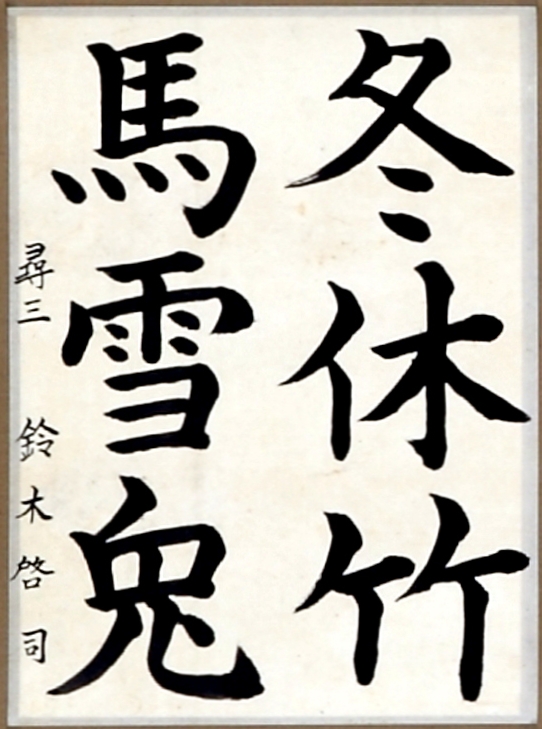 冬休竹
馬雪兔
尋三 鈴木啓司